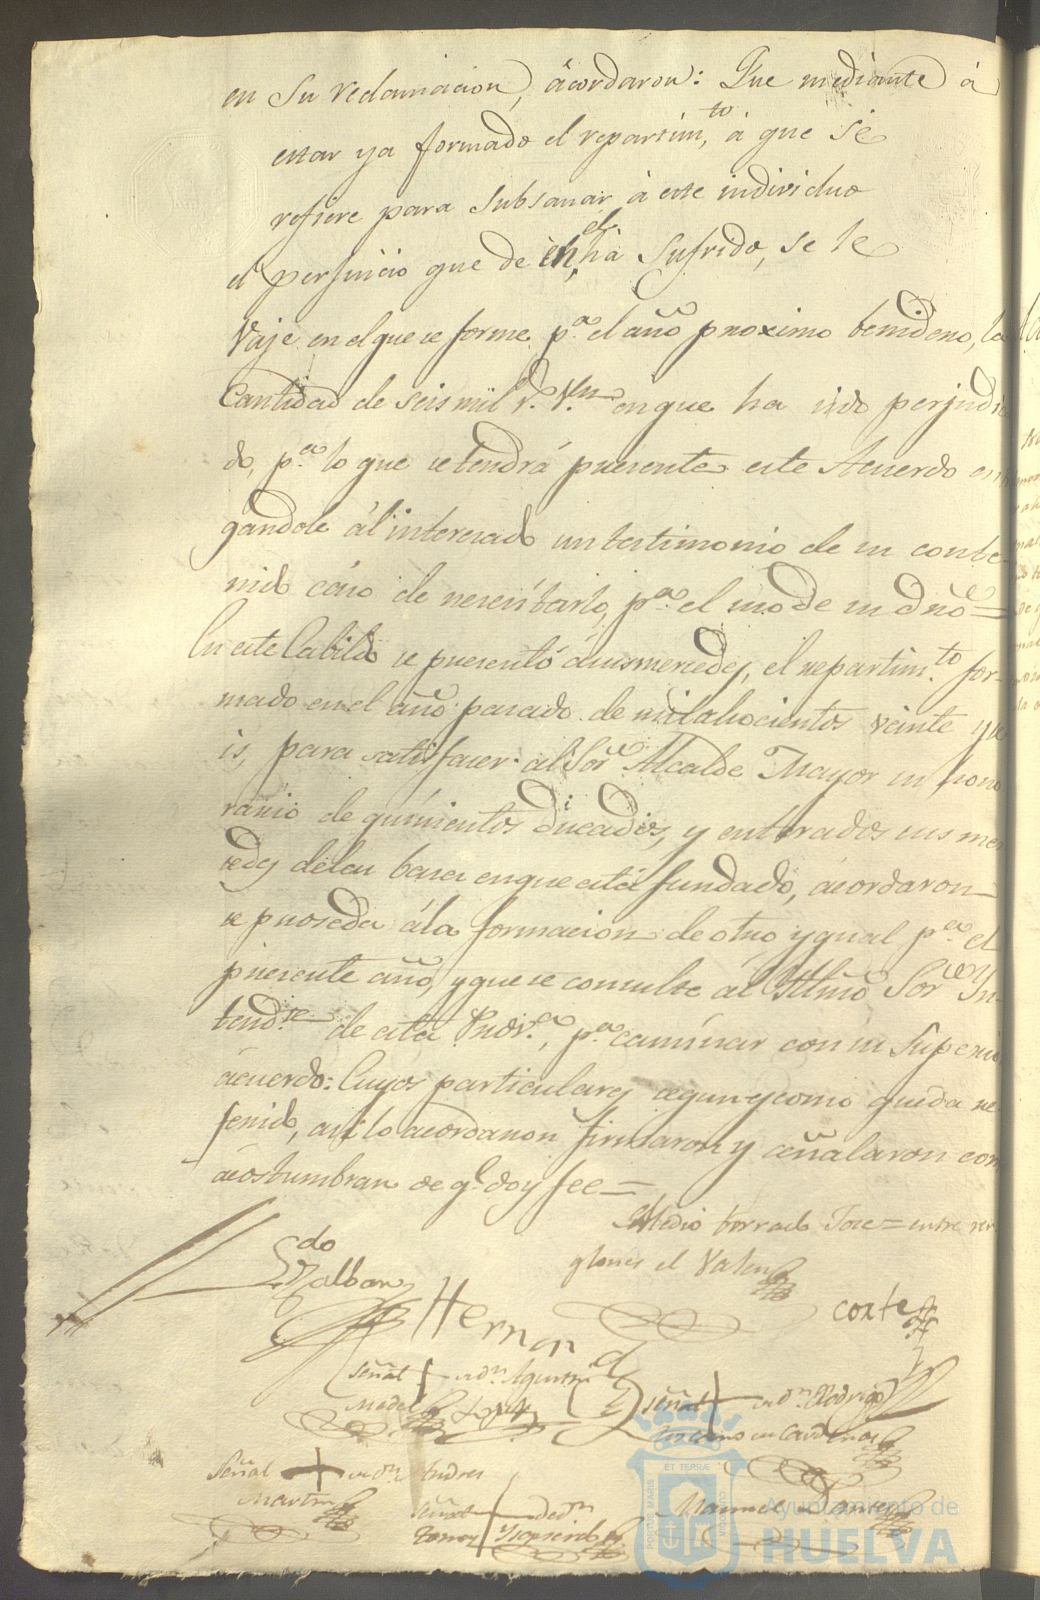 en su reclamacion, acordaron: Que mediante á
estar ya formado el repartim,to á que se
refiere para subsanar á este individuo
el perjuicio que de él ha sufrido, se le
Vaje en el que se forme pa el año proximo benidero, la
Cantidad de seis mil r.s V.n en que ha sido perjudi
do, pa lo que se tendrá presente este Acuerdo en
gandole ál interesado un testimonio de su conte-
nido cáso de nesesitarlo, pa el uso de su dro =
En este Cabildo se presentó ásus mercedes, el repartim.to for-
mado en el año pasado de mil ochocientos veinte y se
is, para satisfacer al Sor Alcalde Mayor su hono
rario de quinientos Ducados, y enterados sus mer
cedes de las bases en que está fundado, acordaron
se proseda ála formacion de otro ygual pa el
presente año, y que se consulte ál Yltmo Sor Yn-
tend.te de esta Prov.a, pa caminar con su Superior
ácuerdo: Cuyos particulares segun y como queda re
ferido, asi lo acordaron firmaron y señalaron con
acostumbran de q.e doy fee =
Medio borrado = entre ren
glones el Valen
Ldo
Villalban
Hernand
Corte
Señal + de dn Agustin
Medel y Lopez
Señal + de dn Rodrigo
de Cardenas
Señal + de dn Andres
Martin
Señal + de dn
Manuel
PORTUS MARIS
ET TERRÆ
Ayuntamiento de
HUELVA